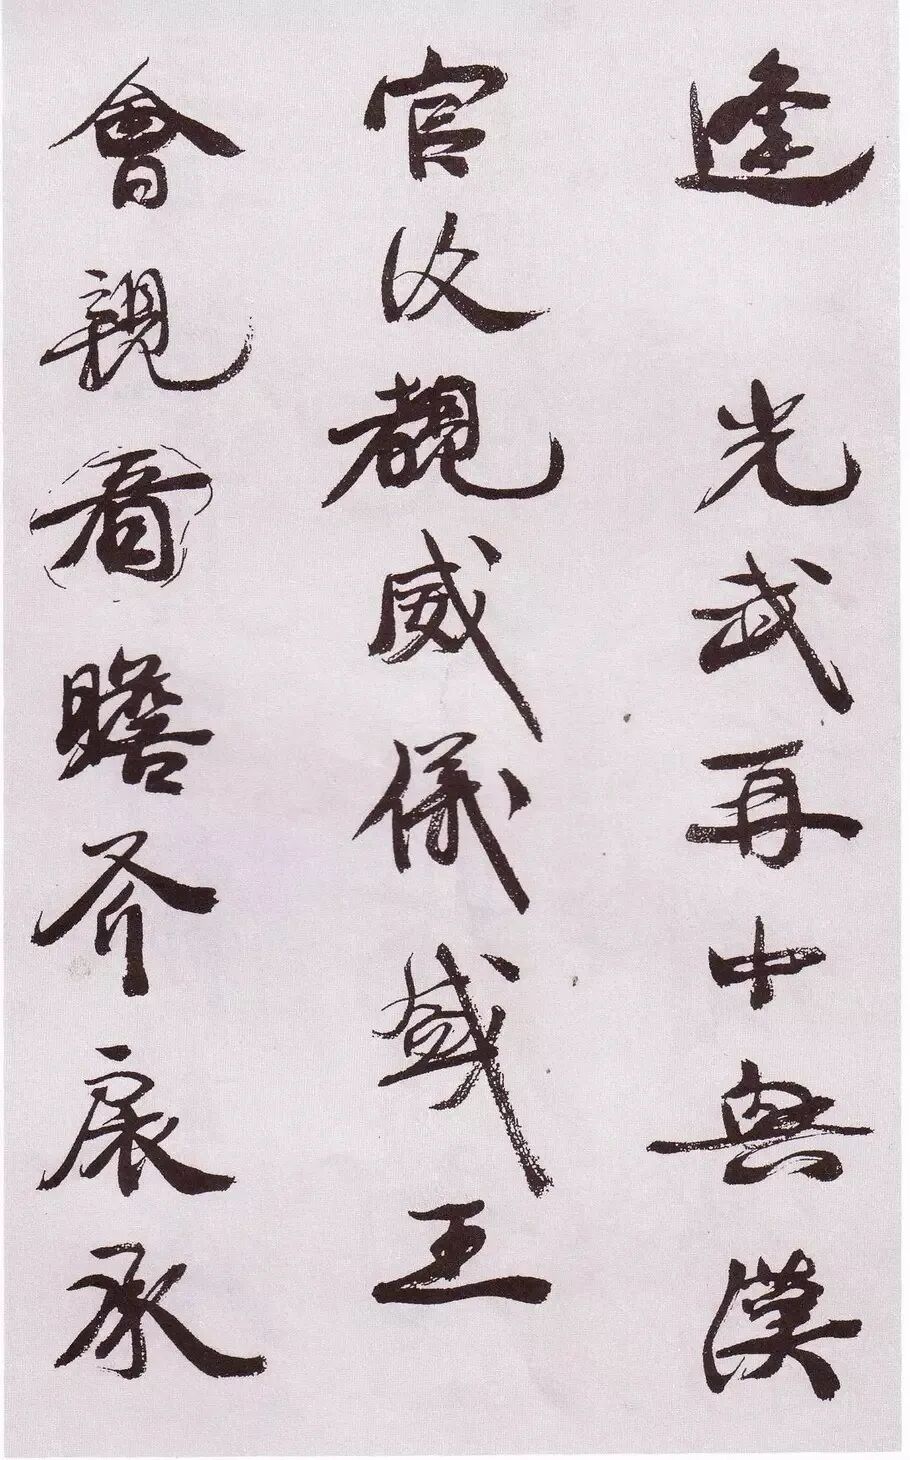 逢 光武再中興漢
官復覩威儀盛王
會親看瞻斧扆承